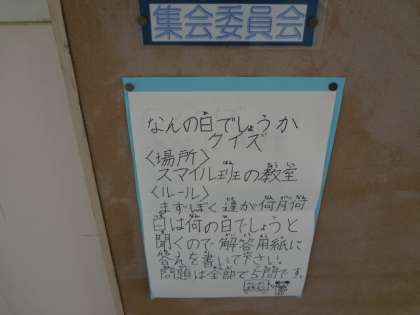 集会委員会
なんの日でしょうか
クイズ
〈場所〉
スマイル班の教室
〈ルール〉
まずぼく達が何月何
日は何の日でしょうと
聞くので解答用紙に
答えを書いて下さい。
問題は全部で5問です。